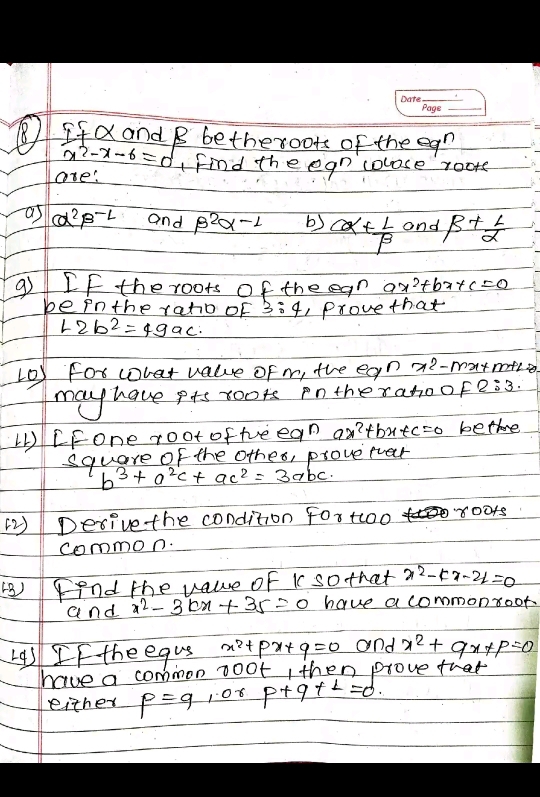 Date
Page
8) If α and β be the roots of the eqn
x²-x-6=0, find the eqn whose roots
are:
a) α²β⁻¹ and β²α⁻¹ b) α+1/β and β+1/α
9) If the roots of the eqn ax²+bx+c=0
be in the ratio of 3:4, prove that
12b²=49ac.
10) For what value of m, the eqn x²-mx+m+1=0
may have its roots in the ratio of 2:3.
11) If one root of the eqn ax²+bx+c=0 be the
square of the other, prove that
b³+a²c+ac²=3abc.
12) Derive the condition for two roots
common.
13) Find the value of k so that x²-kx-21=0
and x²-3kx+35=0 have a common root.
14) If the eqns x²+px+q=0 and x²+qx+p=0
have a common root, then prove that
either p=q, or p+q+1=0.